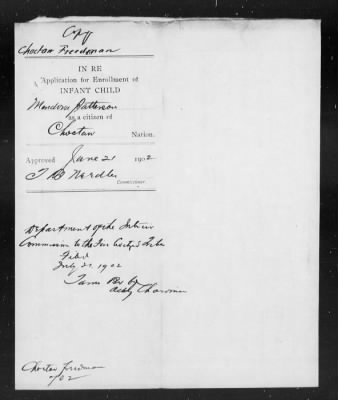 Copy
Choctaw Freedman
IN RE
Application for Enrollment of
INFANT CHILD
Mendora Patterson
as a citizen of
Choctaw
Nation.
Approved June 21 1902
T B Needles
Commissioner
Department of the Interior
Commission to the Five Civilized Tribes
Filed
July 21, 1902
Tams Bixby
Acting Chairman
Choctaw Freedman
702